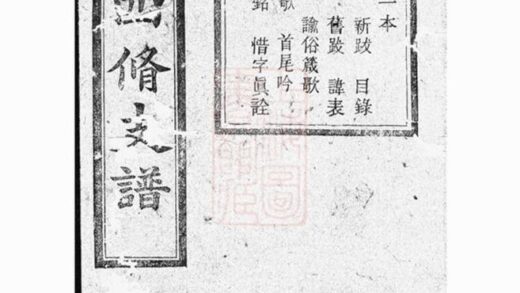 本
新跋 目錄
舊跋 諱表
諭俗箴歌
歌 首尾吟
銘 惜字眞詮
四脩支譜